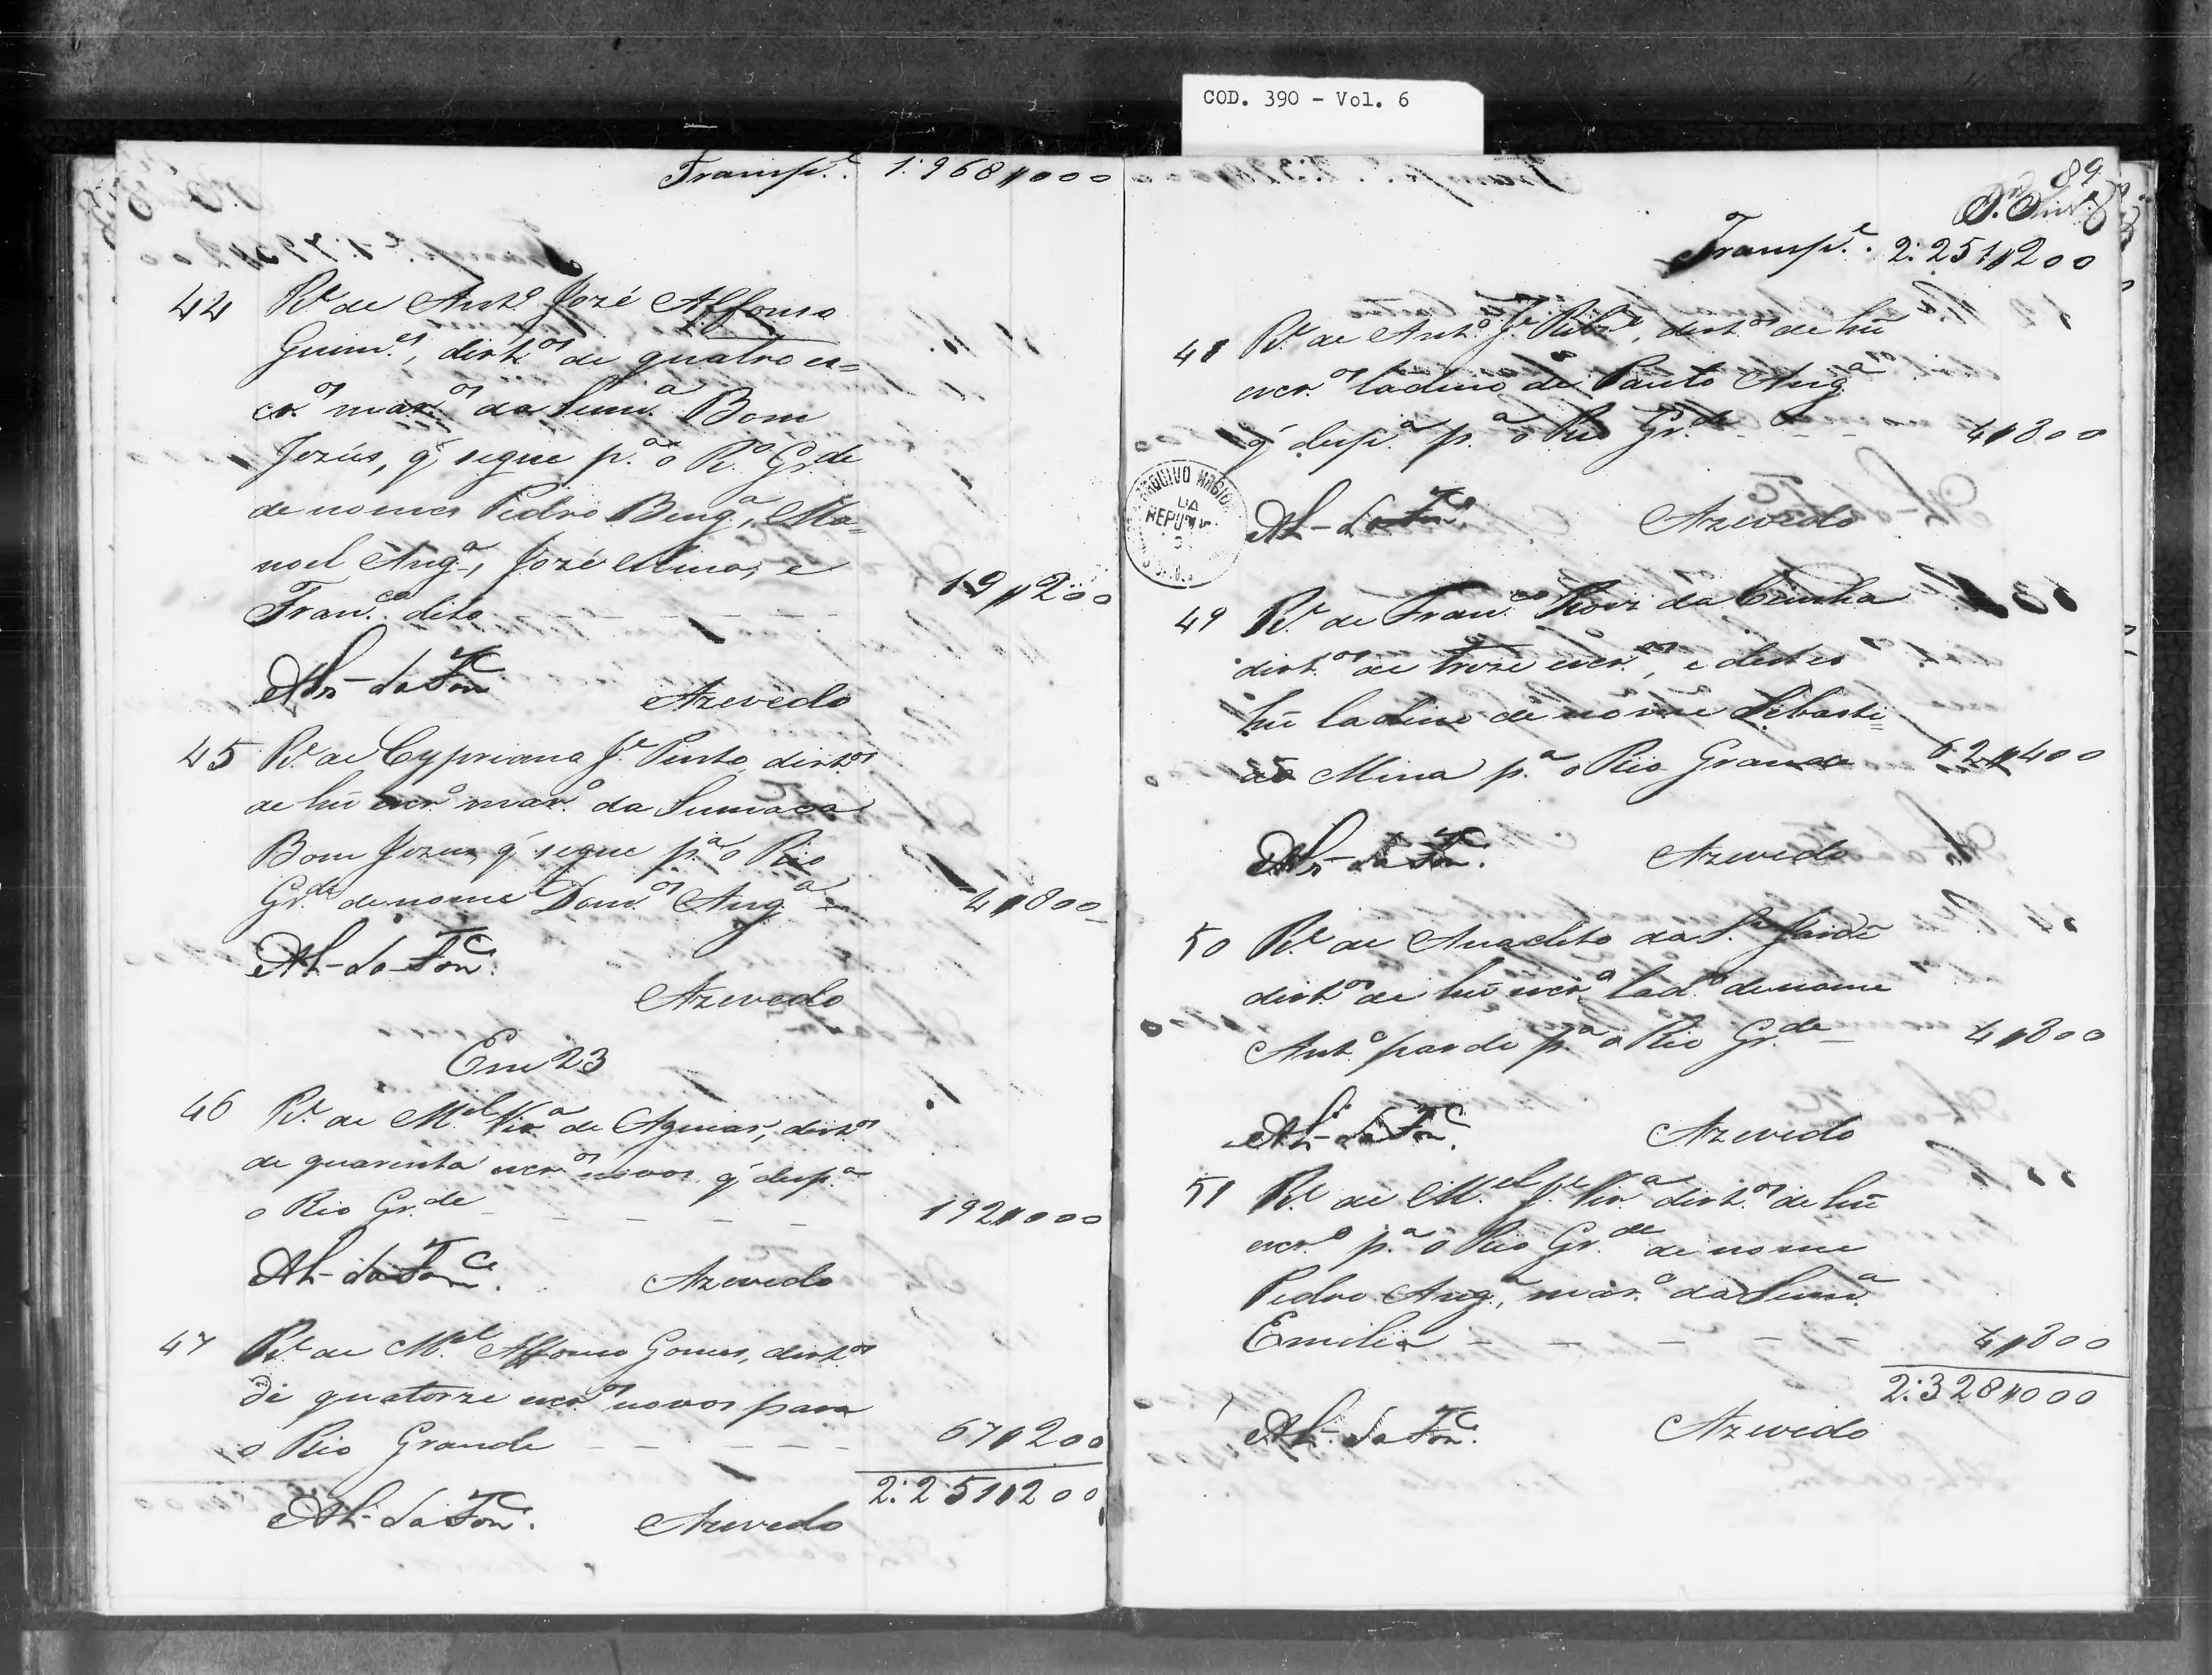 COD. 390 - Vol. 6
Transp.e 1:968$000
44 R.e de Ant.o José Affonso
Guim.es, dirt.os de quatro es=
cr.os mar.os da Sum.a Bom
Jezús, q' segue p.a o R.o Gr.de
de nomes Pedro Beng.a, Ma=
noel Ang.a, José Mina, e
Fran.co dito - - - - 19$200
Azevedo
45 R.e de Cypriano J.e Pinto, dirt.os
de hũ escr.o mar.o da Sumaca
Bom Jezus, q' segue p.a o Rio
Gr.de de nome Dom.os Ang.a - 4$800
Azevedo
Em 23
46 R.e de M.el Vir.a de Aguiar, dirt.os
de quarenta escr.os novos q' desp.a
o Rio Gr.de - - - - - 192$000
Azevedo
47 R.e de M.el Affonso Gomes, dirt.os
de quatorze escr.os novos para
o Rio Grande - - - - - 67$200
2:251$200
Azevedo
89
Transp.e 2:251$200
48 R.e de Ant.o J.e Ribr.o, dirt.os de hũ
escr.o ladino de Paulo Ang.a
q' desp.a p.a o Rio Gr.de - - - 4$800
ARQUIVO NACIONAL
DA
REPUBLICA
Azevedo
49 R.e de Fran.co Roiz da Cunha
dirt.os de treze escr.os, e destes
hũ ladino de nome Sebasti=
ão Mina p.a o Rio Grande 62$400
Azevedo
50 R.e de Anacleto da S.a
dirt.os de hũ escr.o lad.o de nome
Ant.o pardo p.a o Rio Gr.de - 4$800
Azevedo
51 R.e de M.el J.e Vir.a dirt.os de hũ
escr.o p.a o Rio Gr.de de nome
Pedro Ang.a, mar.o da Sum.a
Emilia - - - - - - 4$800
2:328$000
Azevedo